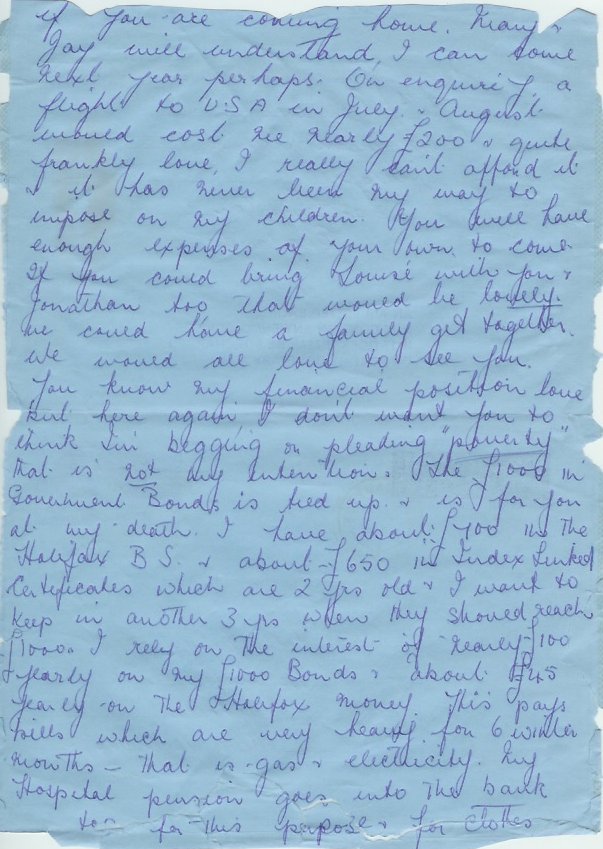 if you are coming home. Mary &
Jay will understand, I can come
next year perhaps. On enquiry, a
flight to USA in July & August
would cost me nearly £200 & quite
frankly love, I really can't afford it
& it has never been my way to
impose on my children. You will have
enough expenses of your own to come.
If you could bring Louise with you &
Jonathan too that would be lovely.
we could have a family get together.
We would all love to see you.
You know my financial position love
but here again I don't want you to
think I'm begging or pleading "poverty"
that is not my intention. The £1000 in
Government Bonds is tied up & is for you
at my death. I have about £700 in the
Halifax B S. & about £650 in Index Linked
Certificates which are 2 yrs old & I want to
keep in another 3 yrs when they should reach
£1000. I rely on the interest of nearly £100
yearly on my £1000 Bonds & about £45
yearly on the Halifax money. This pays
bills which are very heavy for 6 winter
months – that is gas & electricity. My
Hospital pension goes into the bank
too for this purpose & for clothes